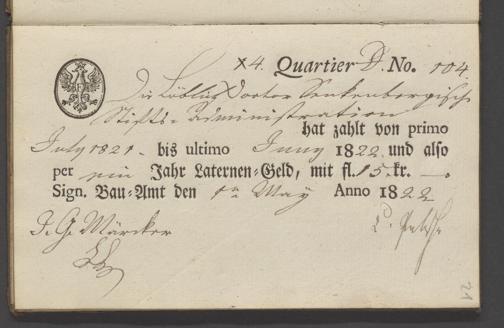 x4. Quartier D. No. 104.
Die Löbliche Doctor Senkenbergische
Stifts-Administration
hat zahlt von primo
July 1821. bis ultimo Juny 1822. und also
per ein Jahr Laternen-Geld, mit fl. 15. kr. —.
Sign. Bau-Amt den May Anno 1822
J. G. Märcker
21